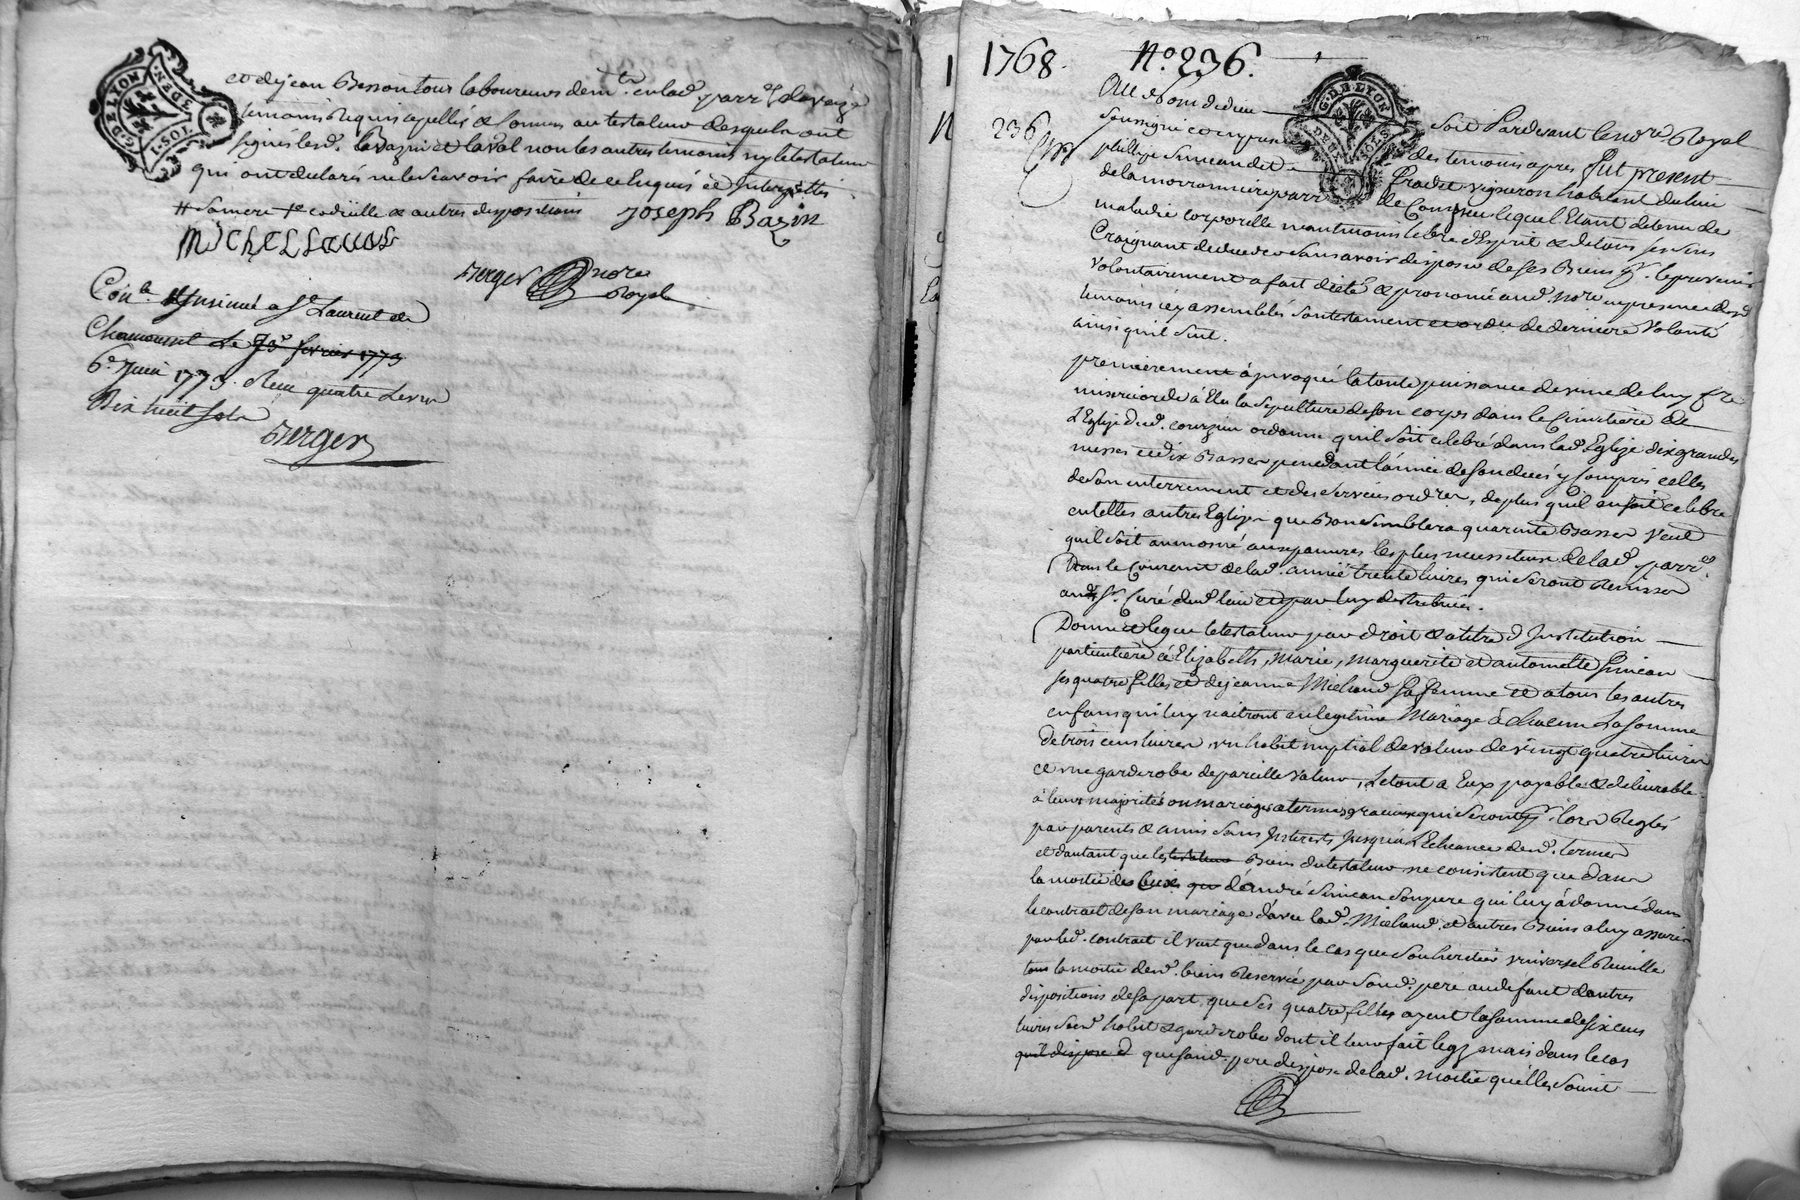 et de jean Besson tous laboureurs dem.t en lad. parr.e
temoins requis apellés & connus au testateur desquels ont
signés lesd. Bazin et Laval non les autres temoins ny le testateur
qui ont declarés ne le scavoir faire de ce Enquis et Interpellés
codicille & autres dispositions Joseph Bazin
MICHEL LAVAL
Berger nore
Royal
Con.le & Insinué a S.t Laurent de
Chamousset Le fevrier 1773
6.e Juin 1773. Reçu quatre Livres
Dix huit sols
Berger
G. DE LYON
3 DEN.
1768. N.o 236.
236
G. DE LYON
Au Nom de Dieu soit Pardevant le nore Royal
soussigné et en presence des temoins apres fut present
phillipe Simean dit Pradet vigneron habitant du lieu
de la morvonniere parr. de Courzieu lequel Etant detenu de
maladie corporelle neantmoins libre d'Esprit & de tous ses sens
Craignant deceder sans avoir disposé de ses Biens
Volontairement a fait dicté & prononcé aud. nore en presence desd.
temoins icy assemblés son testament et ordre de derniere Volonté
ainsi qu'il suit.
premierement a invoqué la toute puissance divine de luy f.re
misericorde à Elu la sepulture de son corps dans le Cimetiere de
L'Eglise dud. courzieu ordonne qu'il soit celebré dans lad. Eglise dix grandes
messes et dix Basses pendant l'année de son deces y compris celles
de son enterrement et des services ord.res, de plus qu'il en soit celebré
en telles autres Eglises que Bon Semblera quarente Basses Veut
qu'il soit aumosné aux pauvres les plus necessiteux de lad. parr.e
Dans le Courrant de lad. année trente livres qui seront remises
aud. S.r Curé dud. lieu et par luy distribuées.
Donne et legue le testateur par droit & a titre d'Institution
particuliere à Elizabeth, Marie, marguerite et antoinette Simean
ses quatre filles et de jeanne Michaud sa femme et a tous les autres
enfans qui luy naitront en legitime Mariage à chacun La somme
de trois cens livres, un habit nuptial de valeur de vingt quatre livres
et une garderobe de pareille valeur, Le tout a Eux payable & delivrable
à leurs majorités ou mariages a termes gracieux qui seront p.r lors Reglés
par parents & amis sans Interests Jusqu'à L'Echeance desd. termes
et d'autant que les Biens du testateur ne consistent que dans
la moitié des Biens d'André Simean son pere qui luy à donné dans
le contrat de son mariage d'avec lad. Michaud. et d'autres Biens a luy assurés
par led. contrat il veut que dans le cas que son heritier universel Recueille
tous la moitié desd. biens Reservée par sond. pere au defaut d'autres
dispositions de sa part que ses quatre filles ayent la somme de six cens
livres led. habit & garderobe dont il leur fait legs mais dans le cas
qu'il dispose d que sond. pere dispose de lad. moitié qu'elles soient